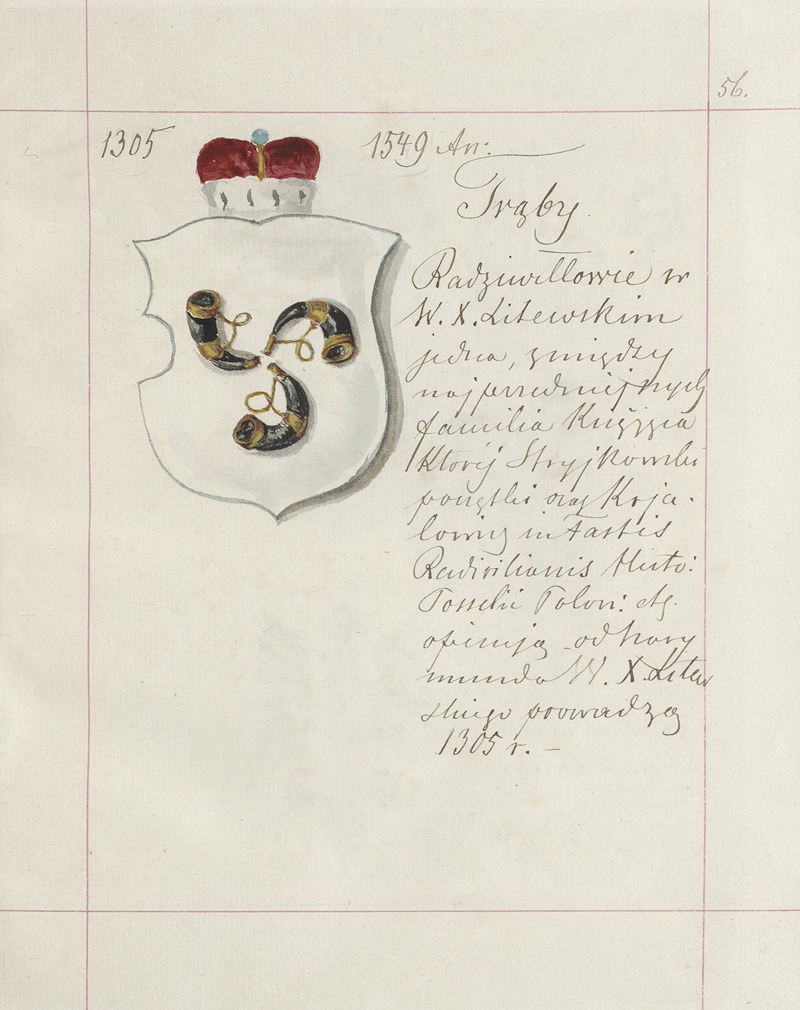 56.
1305
1549 An:
Trąby.
Radziwiłłowie w
W. X. Litewskim
jedna, z między
najprzedniejszych
familia Książęca
Ktorej Stryjkowski
początki oraz Koja-
lowicz in Fastis
Radivilianis Histo:
Polon:
opisują od Nary
munda W. X. Litew
skiego prowadzą
1305 r. –